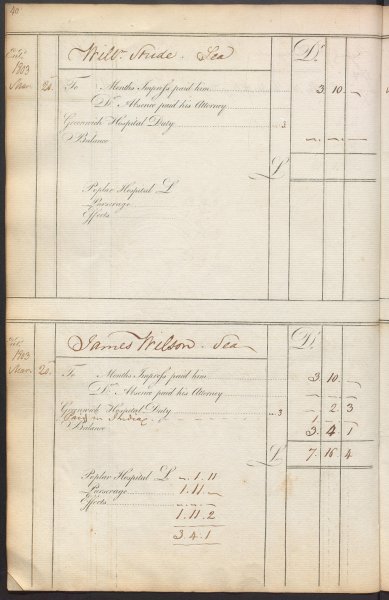 40
1803
Will^m. Stride. Sea
D^r.
Mar. 20. To Months Impress paid him 3. 10. ~
D^o. Absence paid his Attorney
Greenwich Hospital Duty 3
Balance ~ ~ ~
£
Poplar Hospital £
Purserage
Effects
1803
James Wilson. Sea
D^r.
Mar. 20. To Months Impress paid him 3. 10. ~
D^o. Absence paid his Attorney
Greenwich Hospital Duty 3 ~ 2. 3
Paid in India 1
Balance 3. 4. 1
£ 7. 16. 4
Poplar Hospital £ ~. 1. 11
Purserage 1. 11. ~
Effects
1. 11. 2
3. 4. 1